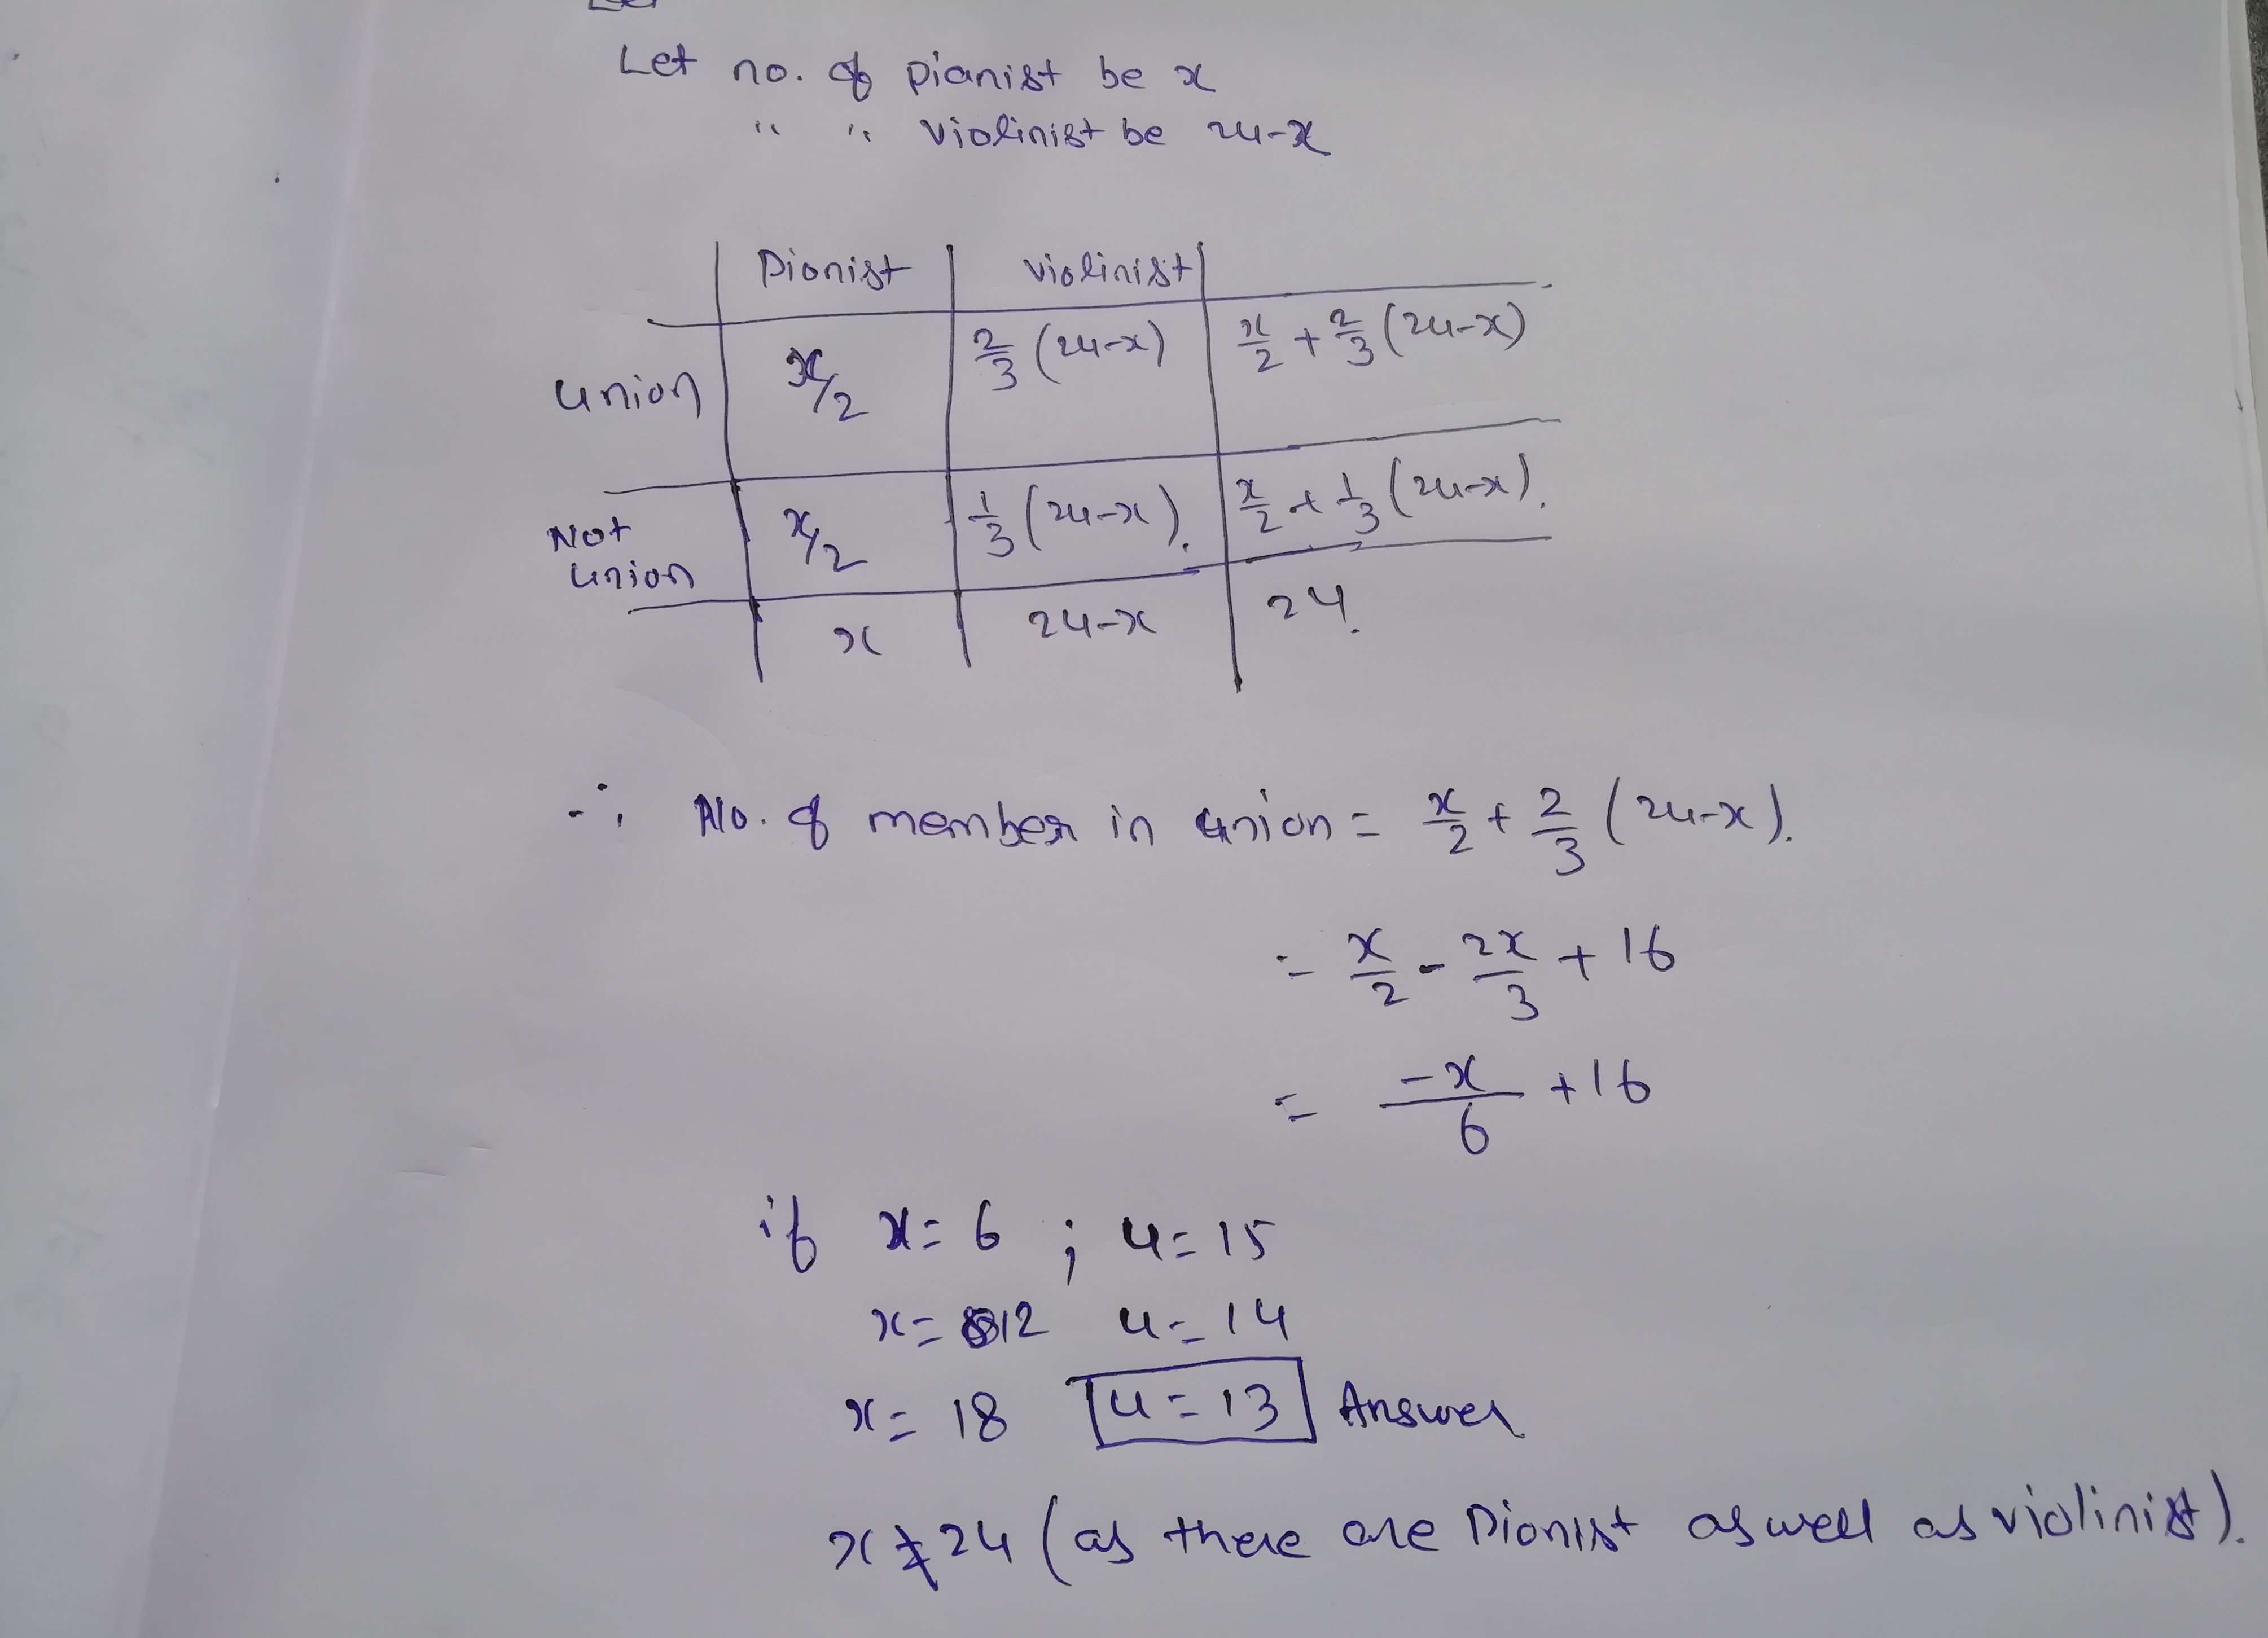 Let no. of pianist be x
" " violinist be 24-x
Pionist violinist
union x/2 2/3 (24-x) x/2 + 2/3 (24-x)
Not union x/2 1/3 (24-x). x/2 + 1/3 (24-x).
x 24-x 24.
∴ No. of member in union = x/2 + 2/3 (24-x).
= x/2 - 2x/3 + 16
= -x/6 + 16
if x = 6 ; u = 15
x = 12 u = 14
x = 18 u = 13 Answer
x ≠ 24 (as there are Pionist as well as violinist).